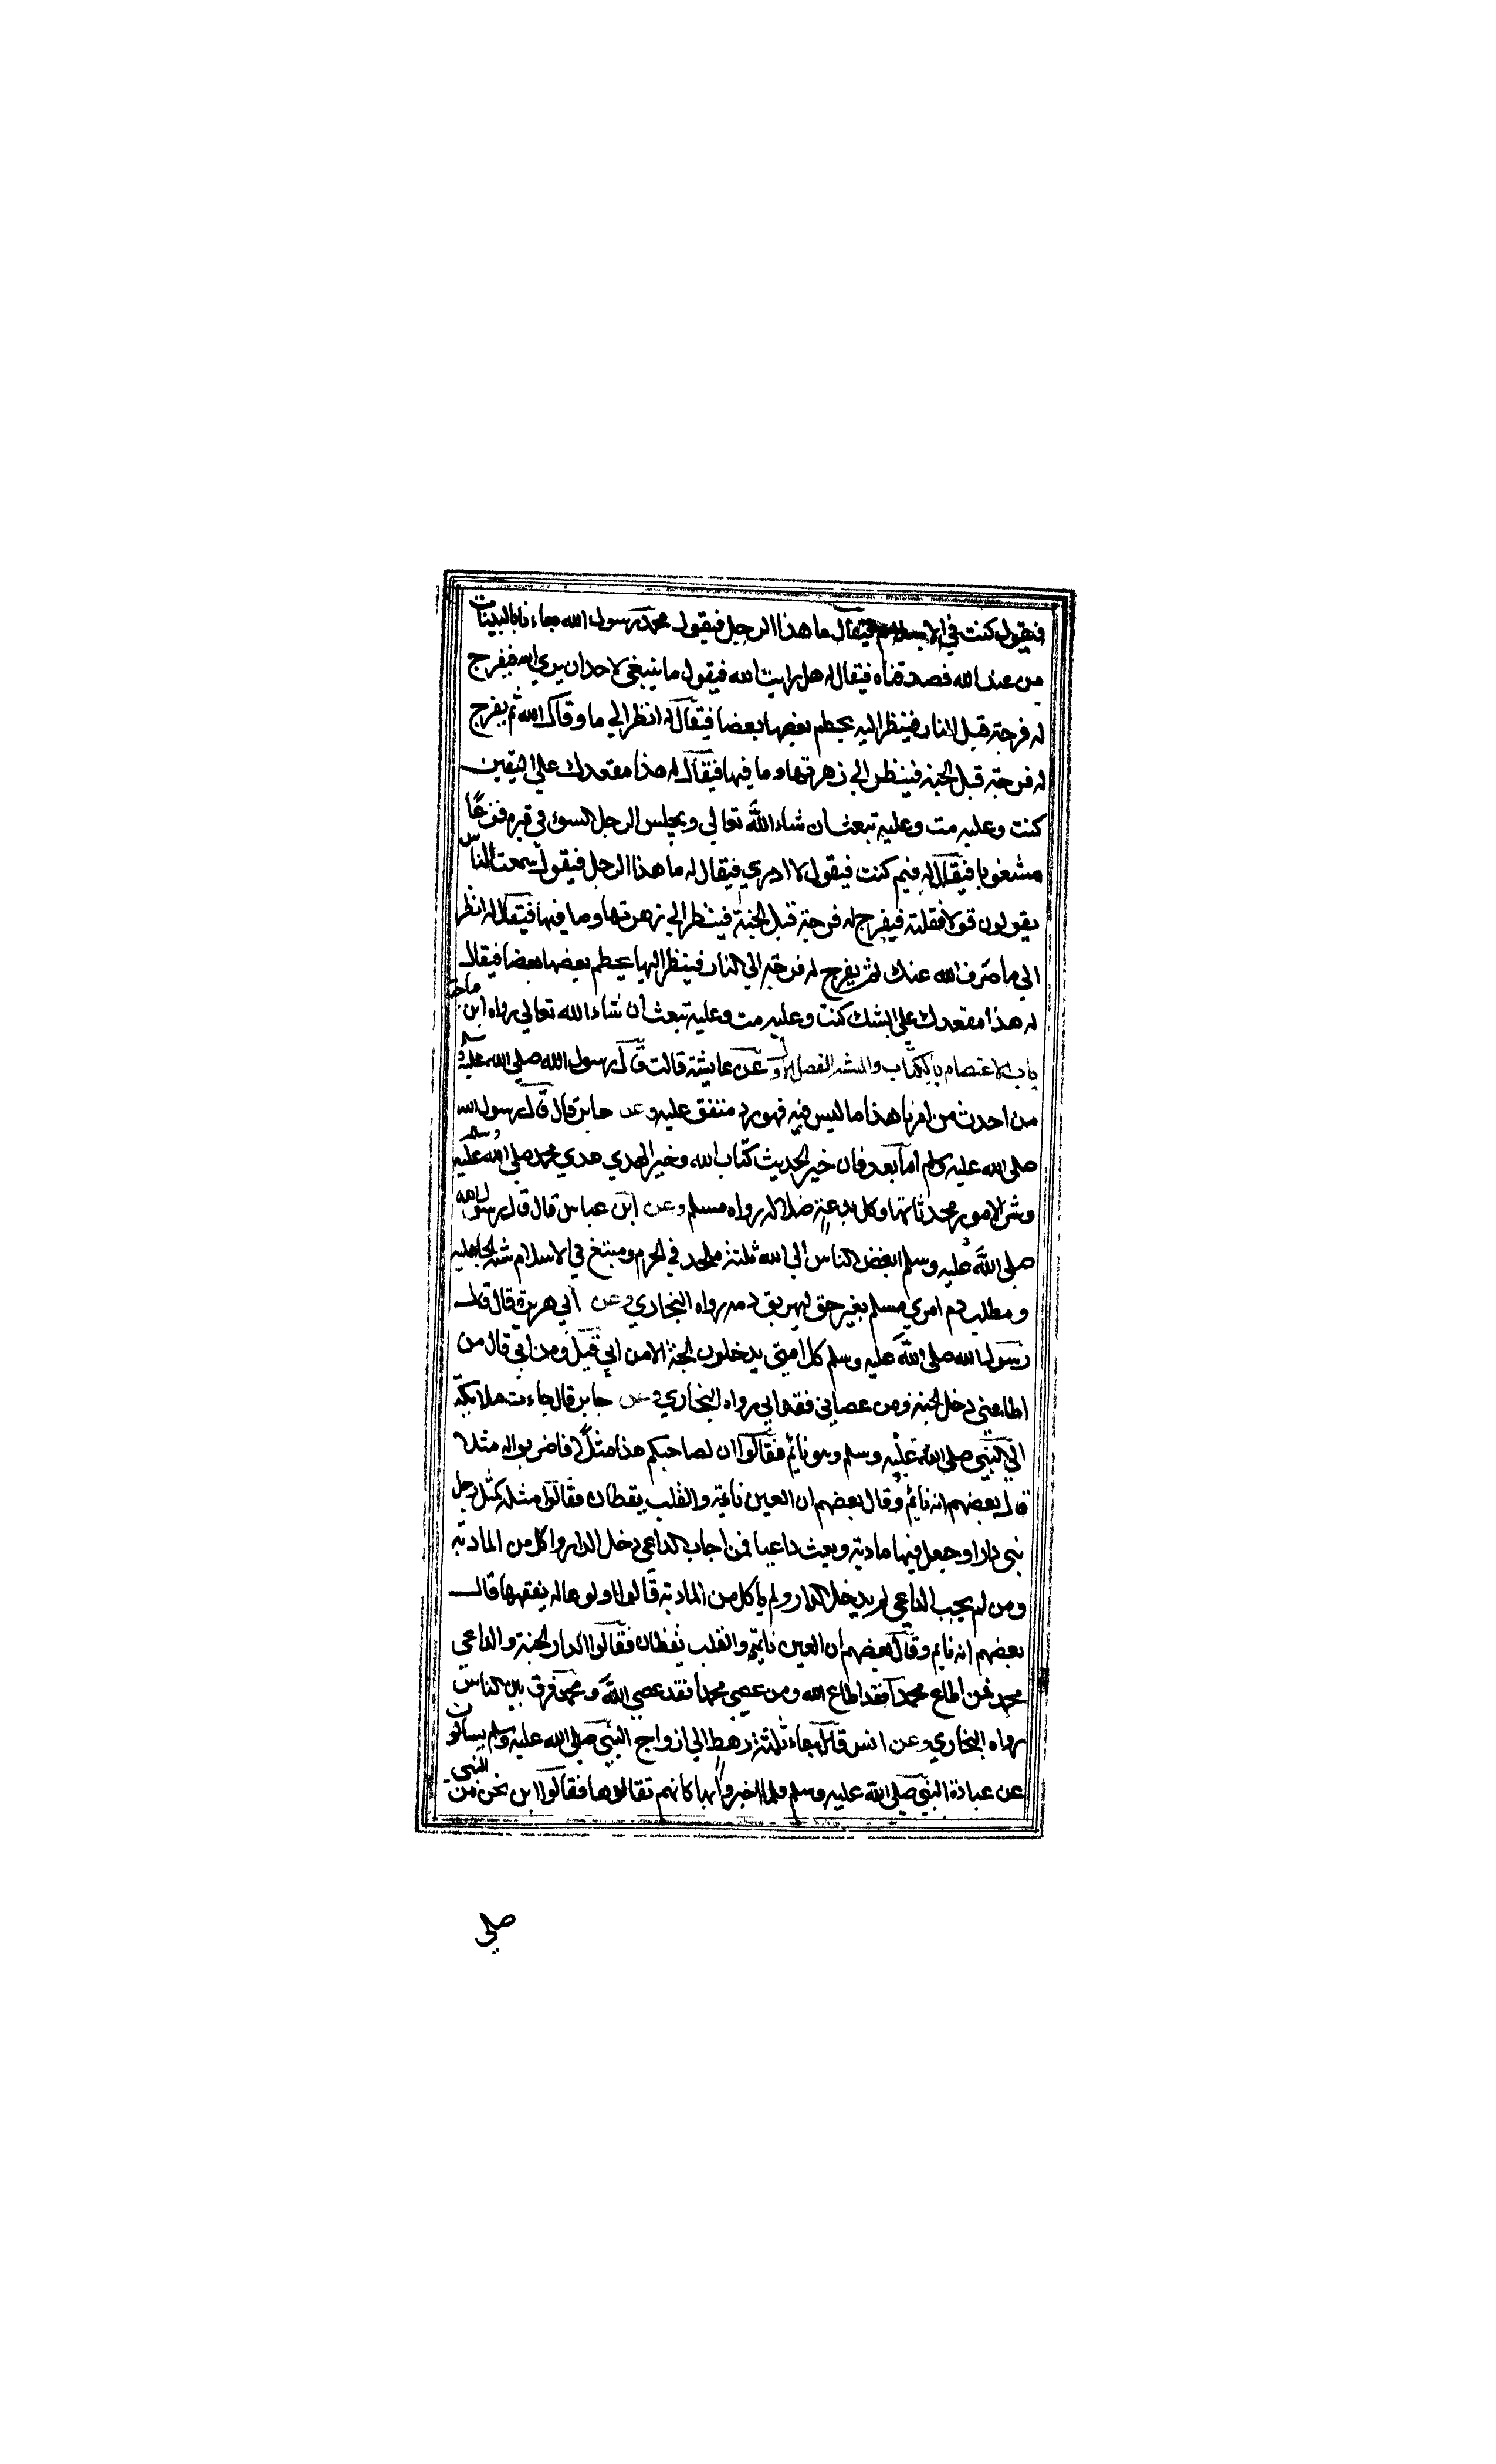 فيقول كنت في الاسلام فيقال ما هذا الرجل فيقول محمد رسول الله جاءنا بالبينات
من عند الله فصدقناه فيقال له هل رايت الله فيقول ما ينبغي لاحد ان يري الله فيفرج
له فرجة قبل النار فينظر اليه يحطم بعضها بعضا فيقال له انظر الي ما وقاك الله ثم يفرج
له فرجة قبل الجنة فينظر الي زهرتها وما فيها فيقال له هذا مقعدك علي اليقين
كنت وعليه مت وعليه تبعث ان شاء الله تعالي ويجلس الرجل السوء في قبره فزعًا
مشغوبا فيقال له فيم كنت فيقول لا ادري فيقال له ما هذا الرجل فيقول سمعت الناس
يقولون قولا فقلته فيفرج له فرجة قبل الجنة فينظر الي زهرتها وما فيها فيقال له انظر
الي ما صرف الله عنك ثم يفرج له فرجة الي النار فينظر اليها يحطم بعضها بعضا فيقال
له هذا مقعدك علي الشك كنت وعليه مت وعليه تبعث ان شاء الله تعالي رواه ابن ماجة
باب الاعتصام بالكتاب والسنة الفصل الاول عن عايشة قالت قال رسول الله صلي الله عليه وسلم
من احدث من امرنا هذا ما ليس فيه فهو رد متفق عليه وعن جابر قال قال رسول الله
صلي الله عليه وسلم اما بعد فان خير الحديث كتاب الله وخير الهدي هدي محمد صلي الله عليه وسلم
وشر الامور محدثاتها وكل بدعة ضلالة رواه مسلم وعن ابن عباس قال قال رسول الله
صلي الله عليه وسلم ابغض الناس الي الله ثلثة ملحد في الحرم ومبتغ في الاسلام سنة الجاهلية
ومطلب دم امري مسلم بغير حق ليهريق دمه رواه البخاري وعن ابي هريرة قال قال
رسول الله صلي الله عليه وسلم كل امتي يدخلون الجنة الا من ابي قيل ومن ابي قال من
اطاعني دخل الجنة ومن عصاني فقد ابي رواه البخاري وعن جابر قال جاءت ملائكة
الي النبي صلي الله عليه وسلم وهو نائم فقالوا ان لصاحبكم هذا مثلًا فاضربوا له مثلا
قال بعضهم انه نائم وقال بعضهم ان العين نائمة والقلب يقظان فقالوا مثله كمثل رجل
بني دارا وجعل فيها مادبة وبعث داعيا فمن اجاب الداعي دخل الدار واكل من المادبة
ومن لم يجب الداعي لم يدخل الدار ولم ياكل من المادبة قالوا اولوها له يفقهها قال
بعضهم انه نايم وقال بعضهم ان العين نايمة والقلب يقظان فقالوا الدار الجنة والداعي
محمد فمن اطاع محمدا فقد اطاع الله ومن عصي محمدا فقد عصي الله ومحمد فرق بين الناس
رواه البخاري وعن انس قال جاء ثلثة رهط الي ازواج النبي صلي الله عليه وسلم يسالون
عن عبادة النبي صلي الله عليه وسلم فلما اخبروا بها كانهم تقالوها فقالوا اين نحن من النبي
صلي